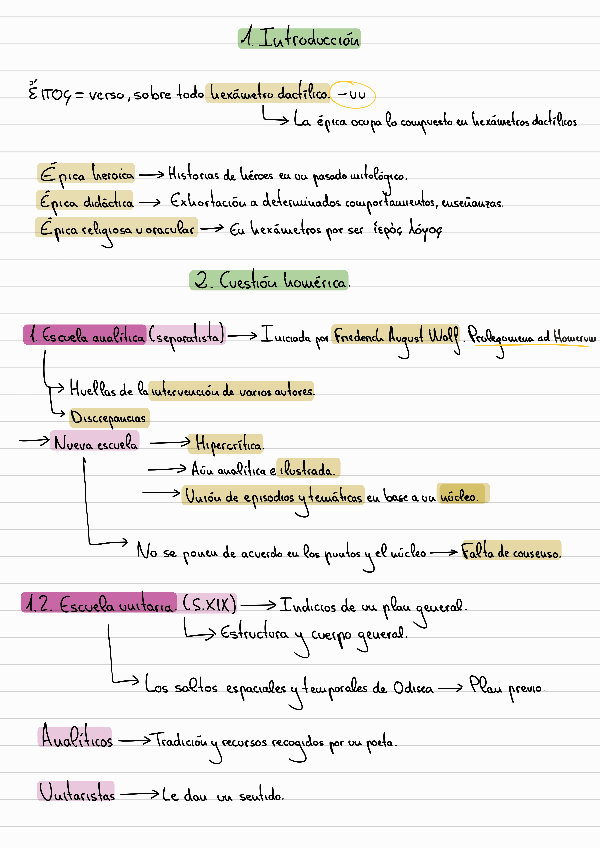 1. Introducción
ἔπος = verso, sobre todo hexámetro dactílico. -UU
La épica ocupa lo compuesto en hexámetros dactílicos
Épica heroica → Historias de héroes en un pasado mitológico.
Épica didáctica → Exhortación a determinados comportamientos, enseñanzas.
Épica religiosa u oracular → En hexámetros por ser ἱερός λόγος
2. Cuestión homérica.
1. Escuela analítica (separatista) → Iniciada por Friederich August Wolf. Prolegomena ad Homerum
Huellas de la intervención de varios autores.
Discrepancias
→ Nueva escuela → Hipercrítica.
→ Aún analítica e ilustrada.
→ Unión de episodios y temáticas en base a un núcleo.
No se ponen de acuerdo en los puntos y el núcleo → Falta de consenso.
1.2. Escuela unitaria. (S.XIX) → Indicios de un plan general.
Estructura y cuerpo general.
Los saltos espaciales y temporales de Odisea → Plan previo.
Analíticos → Tradición y recursos recogidos por un poeta.
Unitaristas → Le dan un sentido.